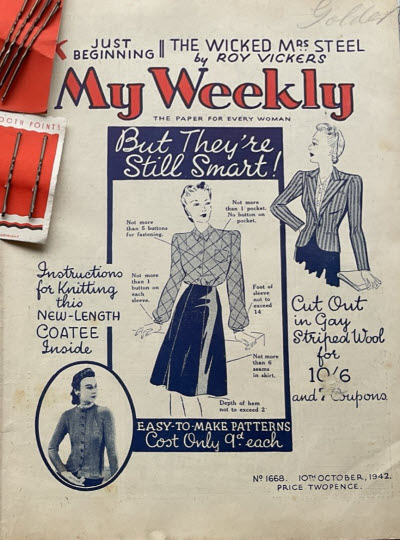 Golden
JUST
BEGINNING
THE WICKED MRS STEEL
by ROY VICKERS
My Weekly
THE PAPER FOR EVERY WOMAN
OOTH POINTS
But They're
Still Smart!
Not more
than 1 pocket.
No button on
pocket.
Not more
than 5 buttons
for fastening.
Not more
than 1
button on
each
sleeve.
Foot of
sleeve
not to
exceed
14
Not more
than 6
seams
in skirt.
Depth of hem
not to exceed 2
Instructions
for Knitting
this
NEW-LENGTH
COATEE
Inside
Cut Out
in Gay
Striped Wool
for
10/6
and 7 Coupons
EASY-TO-MAKE PATTERNS
Cost Only 9d. each
No 1668. 10TH OCTOBER, 1942.
PRICE TWOPENCE.